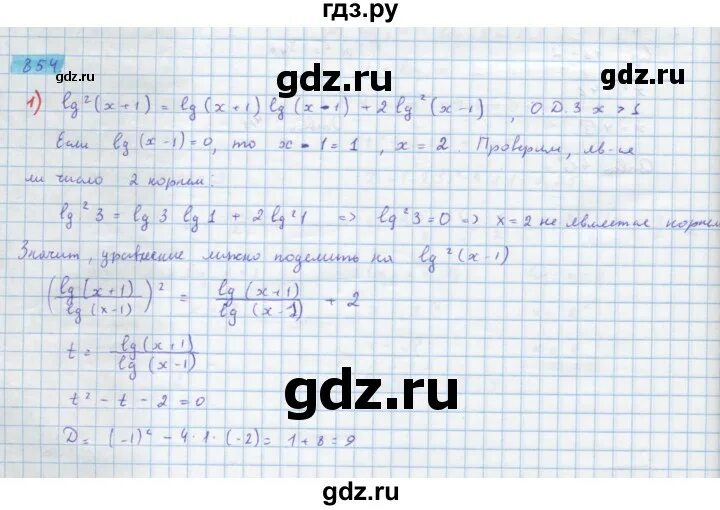 гдз.ру
854 gdz.ru gdz.ru
1) lg²(x+1) = lg(x+1) lg(x-1) + 2lg²(x-1) , О.Д.З x > 1
Если lg(x-1)=0, то x-1=1 , x=2. Проверим, яв-ся
ли число 2 корнем:
lg²3 = lg3 lg1 + 2lg²1 => lg²3=0 => x=2 не является корнем
Значит, уравнение можно поделить на lg²(x-1)
(lg(x+1)/lg(x-1))² = lg(x+1)/lg(x-1) + 2
t = lg(x+1)/lg(x-1)
gdz.ru
t² - t - 2 = 0
D = (-1)² - 4·1·(-2) = 1+8=9
gdz.ru gdz.ru
gdz.ru